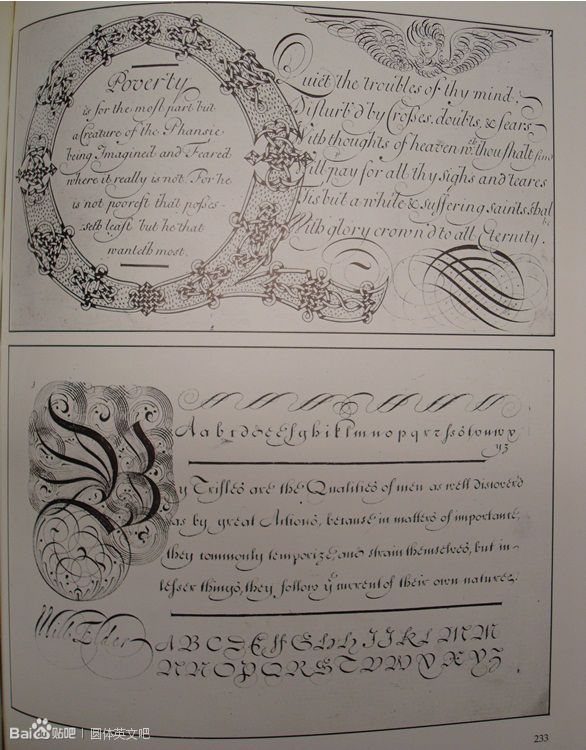 Poverty
is for the most part but
a Creature of the Phansie
being Imagined and Feared
where it really is not. For he
is not poorest that posses-
seth least but he that
wanteth most.
Quiet the troubles of thy mind,
Disturb'd by Crosses, doubts, & fears
With thoughts of heaven wth thou shalt find
Will pay for all thy sighs and teares
Tis but a while & suffering saints shal
be
With glory crown'd to all Eternity.
A a b c d d e e f g h i k l m n o p q r r s s t v u w x
y z
By Trifles are the Qualities of men as well discoverd
as by great Actions, because in matters of importance,
they commonly temporize, and strain themselves, but in
lesser things, they follow ye current of their own natures.
Will: Elder
A B C D E F G H H I J K L M M
N N O P Q R S T V W X Y Z
Bai du 贴吧 | 圆体英文吧
233